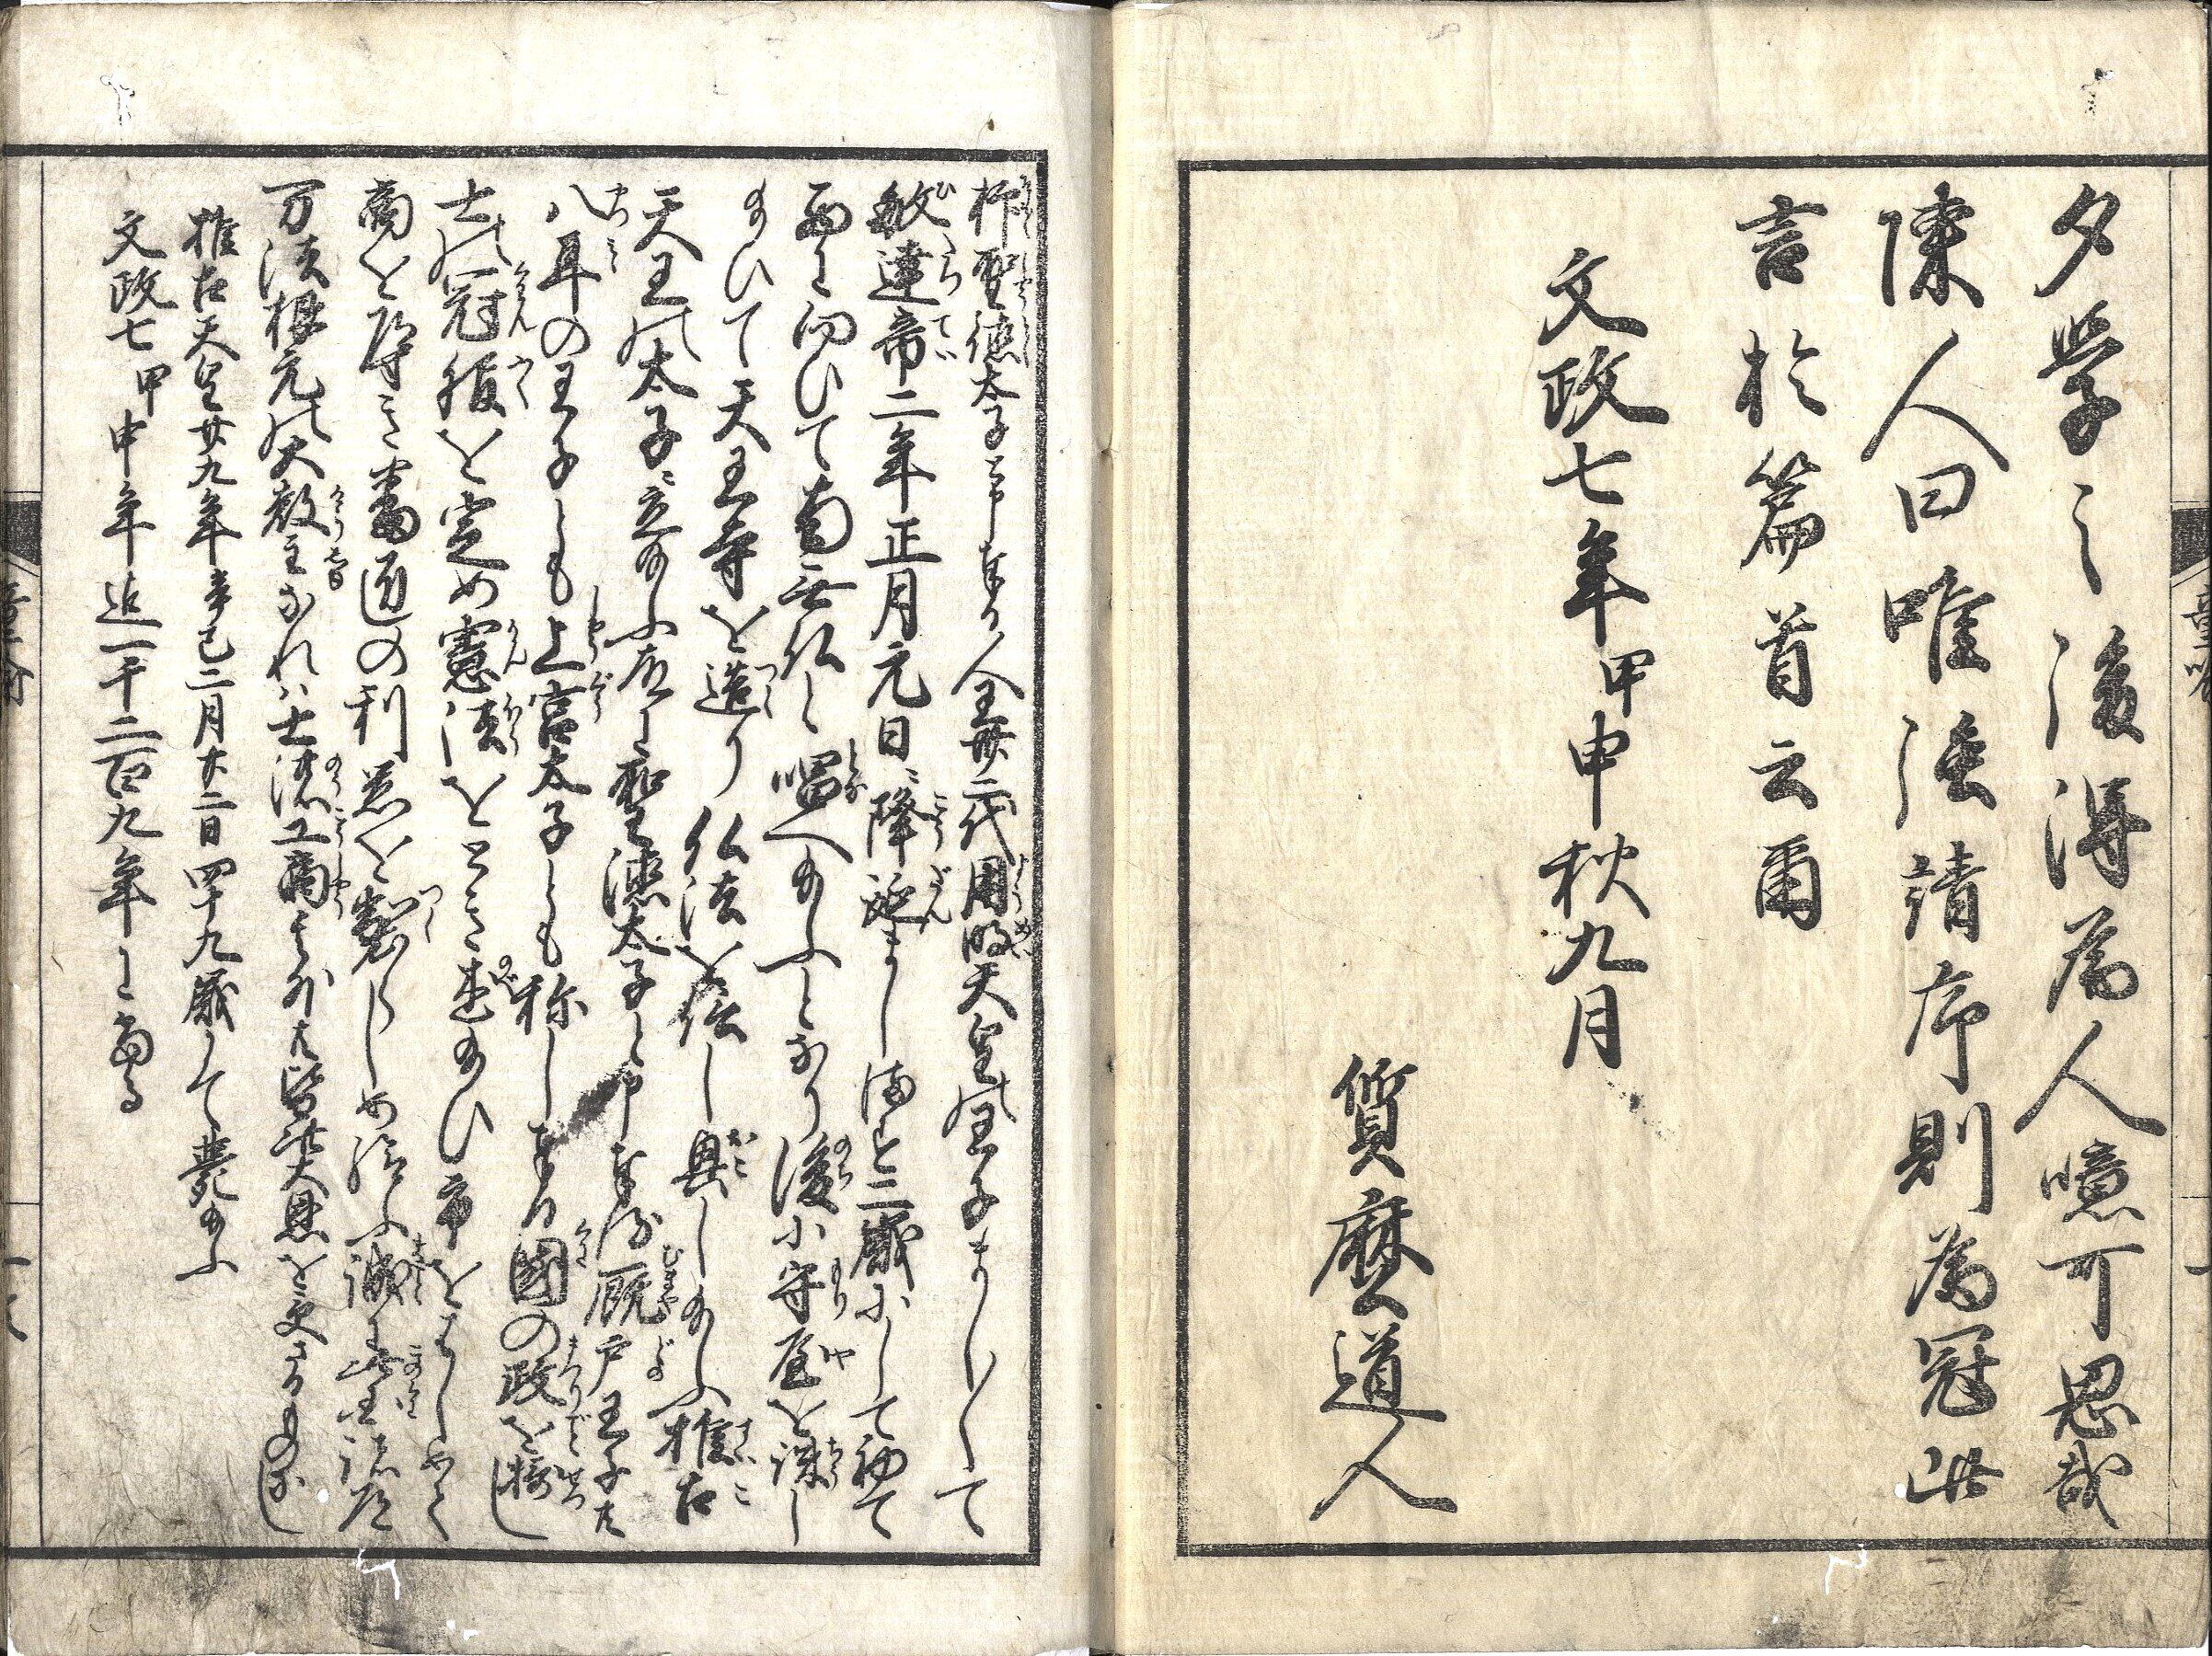 夕学之後得為人噫可思哉
陳人曰唯強請序則為冠此
言於篇首云爾
文政七年甲申秋九月
質麿道人
抑聖徳太子と申奉るハ人王卅二代用明天皇の王子ましまして
敏達帝二年正月元日に降誕まし満と二歳にして初て
西に向ひて南無仏と唱へ給ふとなり後小守屋を誅し
給ひて天王寺を造り仏法を伝し興し給ふ推古
天王の太子に立給ふ 聖徳太子と申奉 厩戸王子又
八耳の王子とも上宮太子とも称し奉る国の政を摂し
士の冠服を定め憲法を 述給ひ市を
商を 番匠の利 を製らしめ給ふ誠に
万法根元の大教主なれハ士濃工商 大恩を
推古天皇廿九年辛巳二月廿二日四十九歳にて薨給ふ
文政七甲申年迄一千二百九年に当る